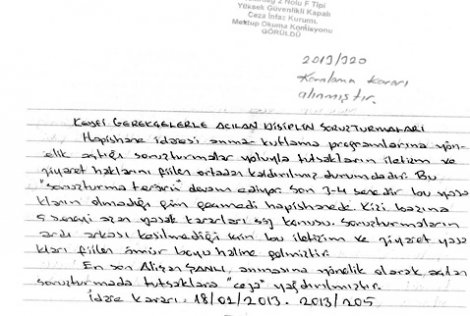 2 Nolu F Tipi
Yüksek Güvenlikli Kapalı
Ceza İnfaz Kurumu
Mektup Okuma Komisyonu
GÖRÜLDÜ
2013/320
Karalama kararı
alınmıştır.
Keyfi GEREKÇELERLE AÇILAN DİSİPLİN SORUŞTURMALARI
Hapishane idaresi anma-kutlama programlarına yön-
elik açtığı soruşturmalar yoluyla tutsakların iletişim ve
ziyaret haklarını fiilen ortadan kaldırılmış durumdadır. Bu
"soruşturma terörü" devam ediyor. Son 3-4 senedir bu yasa
kların olmadığı gün geçmedi hapishanede. Kişi başına
5 seneyi aşan yasak kararları söz konusu. Soruşturmaların
ardı arkası kesilmediği için bu iletişim ve ziyaret yasa
kları fiilen ömür boyu haline gelmiştir.
En son Alişan ŞANLI, anmasına yönelik olarak açılan
soruşturmada tutsaklara "ceza" yağdırılmıştır.
İdare kararı: 18/02/2013. 2013/205